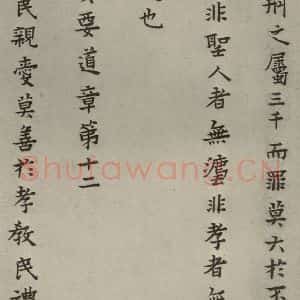 刑之屬三千而罪莫大於不
非聖人者無灋非孝者無
也
要道章第十二
民親愛莫善於孝教民禮
Shufawang.CN